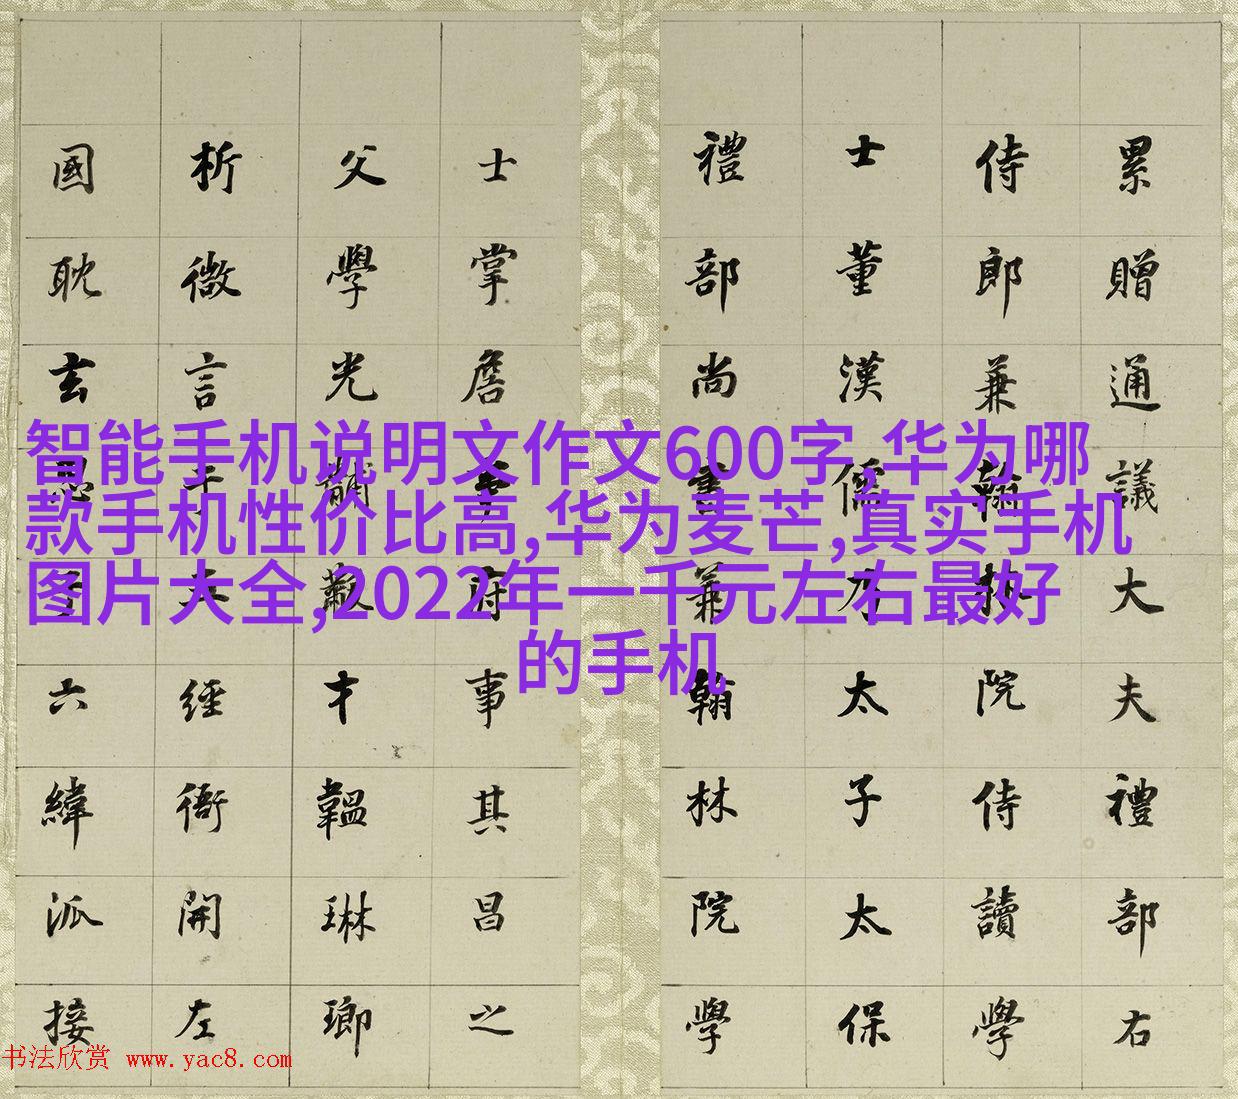 智能手机说明文作文600字,华为哪
款手机性价比高,华为麦芒,真实手机
图片大全,2022年一千元左右最好
的手机
累贈通議大夫禮部右
侍郎兼翰院侍讀學
士董漢儒乃太子太保
禮部尚書兼翰林院學
士掌詹事府事其昌之
父學光黼黻才韞琳瑯
析微言于五經衢開左
國耽玄思于六緯派接
书法欣赏 www.yac8.com